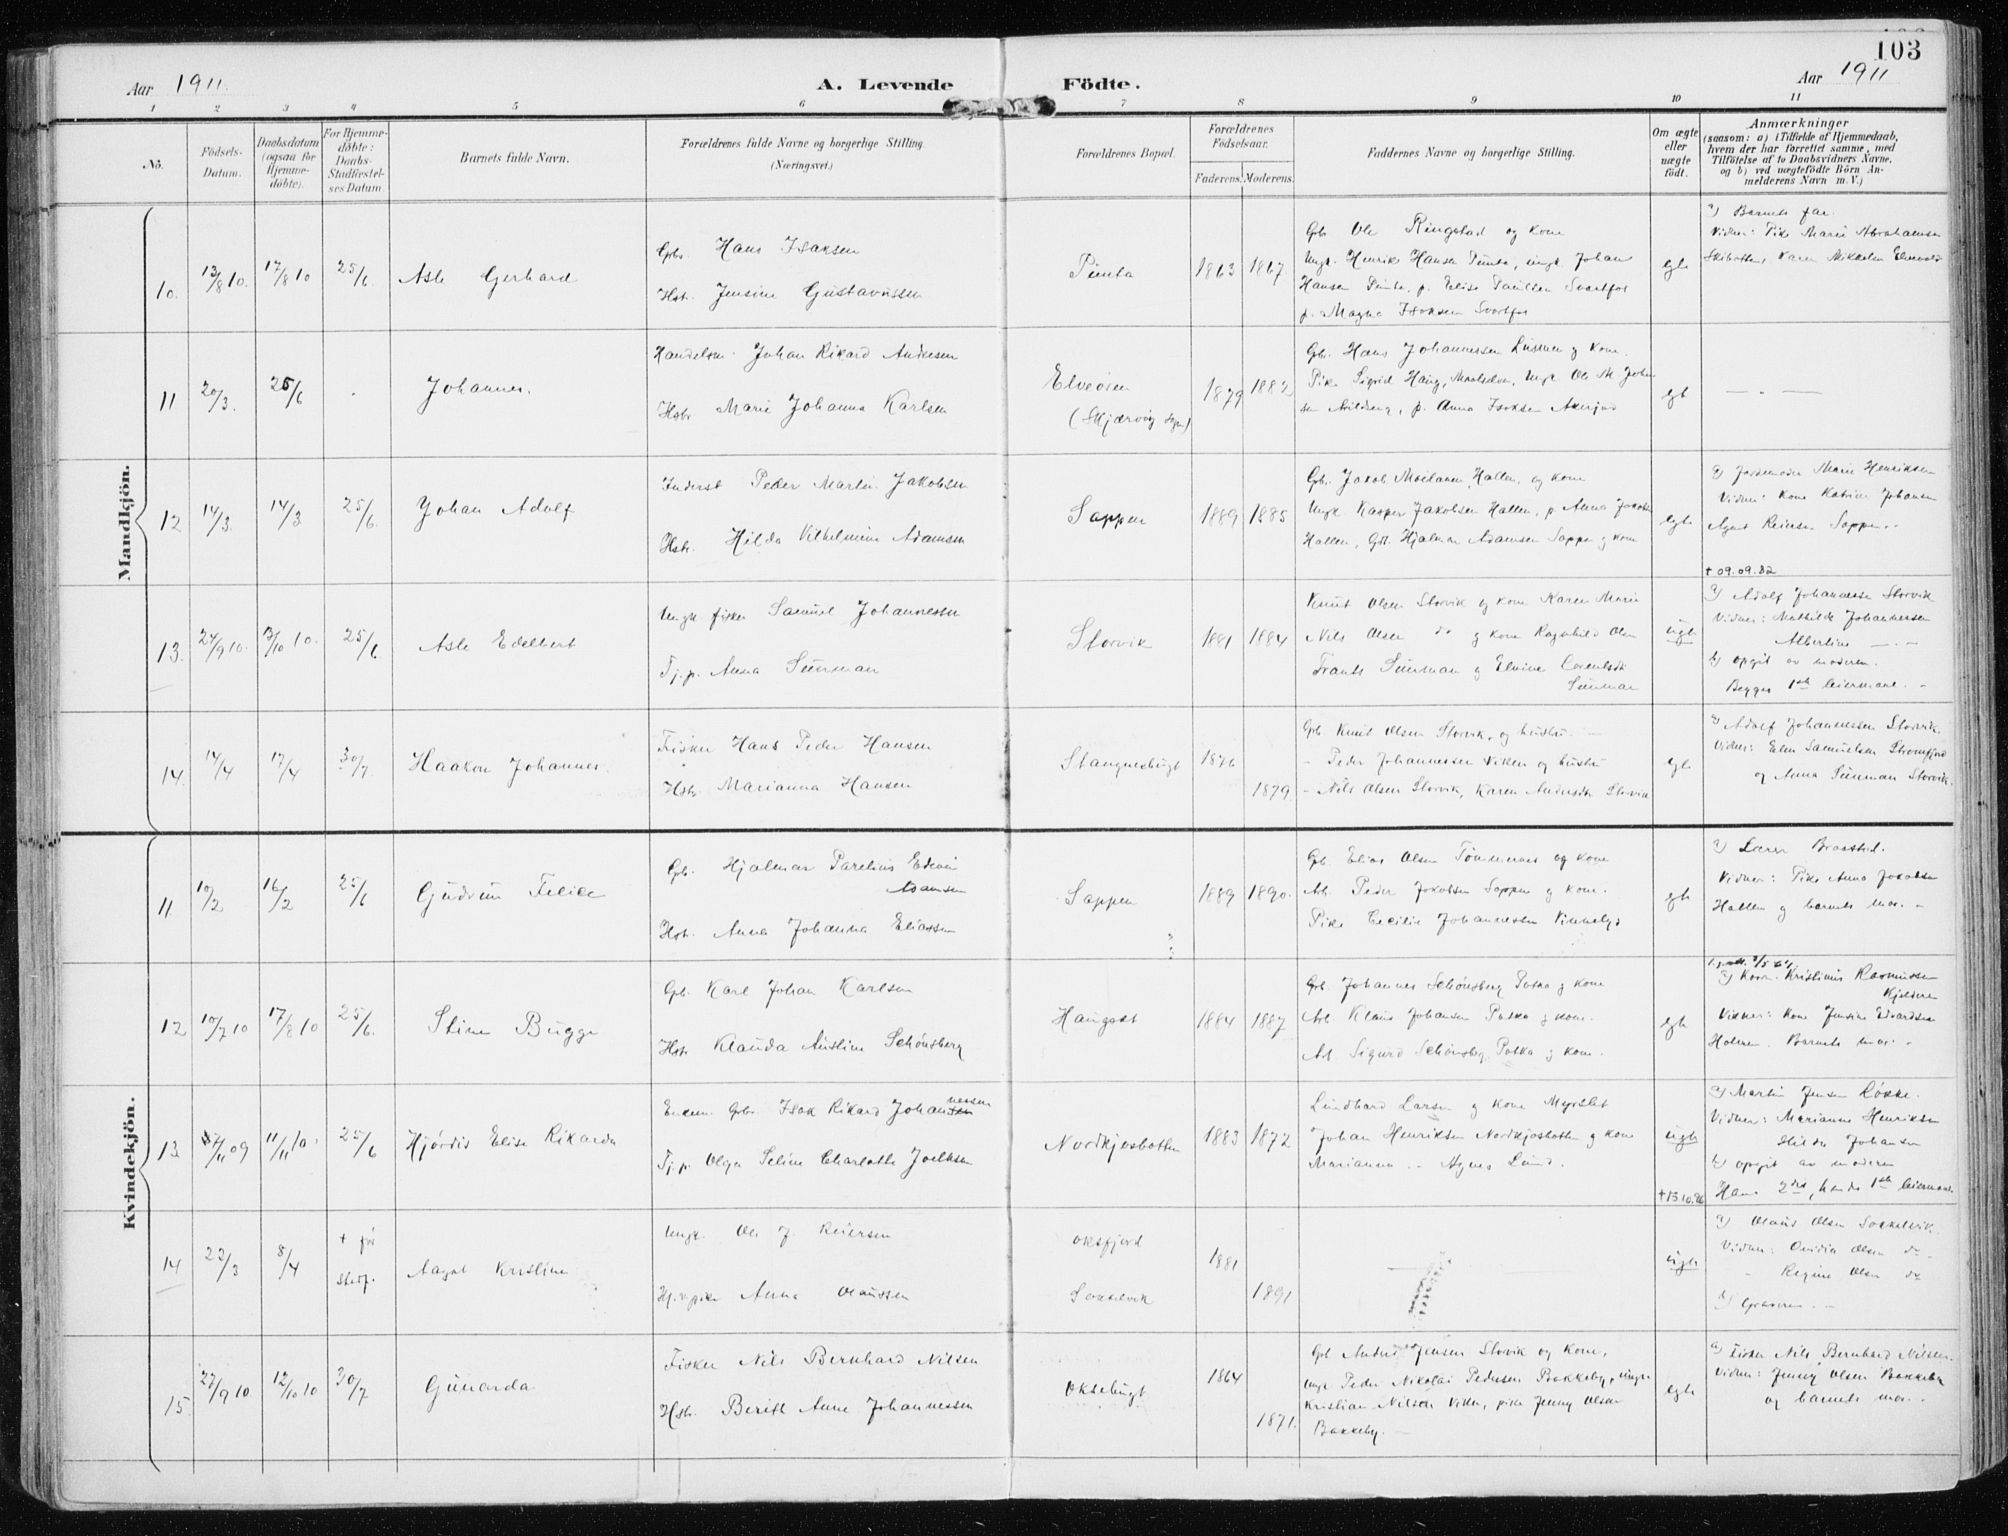 103
Aar 1911.
A. Levende Födte.
Aar 1911
1 2 3 4 5 6 7 8 9 10 11
No.
Födsels-
Datum.
Daabsdatum
(ogsaa for
Hjemme-
döbte).
For Hjemme-
döbte:
Daabs-
Stadfæstel-
ses Datum
Barnets fulde Navn.
Forældrenes fulde Navne og borgerlige Stilling.
(Næringsvei.)
Forældrenes Bopæl.
Forældrenes
Födselsaar.
Faderens. Moderens.
Faddernes Navne og borgerlige Stilling.
Om ægte
eller
uægte
födt.
Anmærkninger
(saasom: a) i Tilfælde af Hjemmedaab,
hvem der har forrettet samme, med
Tilföielse af to Daabsvidners Navne,
og b) ved uægtefödte Börn An-
melderens Navn m. V.)
Mandkjön.
10. 13/8 10. 17/8 10 25/6. Asle Gerhard
Gbr. Hans Isaksen
Hstr. Jensine Gustavussen
Punta 1863 1867.
Gbr Ole Ringstad og kone
Ungk. Henrik Hansen Punta, ungk. Johan
Hansen Punta, p. Elise Paulsen Svartfos
p. Magna Isaksen Svartfos
egte
a) Barnets far.
Vidner: Pike Marie Abrahamsen
Skibotten, Karen Mikkelsen Elvevold
11 20/3. 25/6 Johannes.
Handelsm. Johan Rikard Andresen
Hstr Marie Johanna Karlsen
Elveøren
(Skjærvøy sogn)
1879 1882
Gbr. Hans Johannessen og kone.
Pike Sigrid Haug, Maalselven, Ungk Ole M. Johan
sen , p. Anna Isaksen
egte
12 14/3. 14/3 25/6. Johan Adolf
Inderst Peder Martin Jakobsen
Hstr. Hilda Vilhelmine Adamsen
Sappen 1889 1885
Gbr. Jakob Moilanen, Hallen, og kone
Ungk Kasper Jakobsen Hallen, p. Anna Jakobs
Hallen, Gbr. Hjalmar Adamsen Sappen og kone
egte
a) Jordemoder Marie Henriksen
Vidner: Kone Katrine Johansen
Agnes Reiersen Sappen.
† 09.09.82
13. 24/9 10. 3/10 10. 25/6 Asle Edelbert
Ungk fisker Samuel Johannessen
Tj.p. Anna Sunman
Storvik 1881 1884
Knut Olsen Storvik og kone Karen Marie
Nils Olsen do og kone Ragnhild Olsen
Frants Sunman og Elvine Lorentsdt
Sunman
uegte
a) Adolf Johannessen Storvik
Vidner: Mathilde Johannessen
Albertine
b) opgit av moderen.
Begges 1ste leiermaal.
14. 14/4 17/4 30/7 Haakon Johannes
Fisker Hans Peder Hansen
Hstr Marianna Hansen
Stangnesbugt 1876
1879
Gbr Knut Olsen Storvik, og hustru.
Peder Johannessen Viken og hustru
Nils Olsen Storvik, Karen Andersdt Storvik
egte
a) Adolf Johannessen Storvik
Vidner: Elen Samuelsen Straumfjord
og Anna Sunman Storvik.
Kvindekjön.
11. 10/2 16/2 25/6 Gudrun Felicie
Gbr. Hjalmar Parelius Edevin
Adamsen
Hstr. Anna Johanna Eliassen
Sappen 1889 1890.
Gbr. Elias Olsen Tømmernes og kone
Arb. Peder Jakobsen Sappen og kone.
Pike Cecilie Johannessen
egte
a) Lærer Brostad.
Vidner: Pike Anna Jakobsen
Hallen og barnets mor.
12 10/7 10 17/8 10 25/6. Stine Bugge
Gbr. Karl Johan Karlsen
Hstr Klauda Austine Schönsberg
Haugset 1884 1887
Gbr. Johannes Schönsberg Potka og kone
Arb Klaus Johansen Potka og kone.
Arb Sigurd Schönsberg Potka og kone.
egte
a) Korn. Kristinus Rasmussen
Kjelderen
Vidner: Kone Jensine Edvardsen
Holmen. Barnets mor.
13. 11/09 11/11 10. 25/6 Hjørdis Elise Rikarda
Enkem. Gbr. Isak Rikard Johannessen
Tj.p. Olga Seline Charlotte Joelsen
Nordkjosbotten 1883 1872
Lindhard Larsen og kone Myrslet
Johan Henriksen Nordkjosbotten og kone
Marianna. Agnes Lund.
uegte
†15.10.86
a) Martin Jensen Løkke.
Vidner: Marianne Henriksen
Hilda Johansen
b) opgit av moderen
Hans 2det, hendes 1ste leiermaal.
14 22/3 8/4 † før
stadf. Aagot Kristine
Ungk. Ole J. Reiersen
pike Anna Olaussen
Oksfjord
Sokkelvik
1881
1891
uegte
a) Olaus Olsen Sokkelvik.
Vidner: Ovidia Olsen do
Regine Olsen do
15 27/9 10 12/10 10 30/7 Gunarda
Fisker Nils Bernhard Nilsen
Hstr. Berit Anne Johannessen
Oksebugt 1864
1871.
Gbr Anders Jensen Storvik og kone,
Ungk Peder Nikolai Pedersen Bakkeby, ungk
Kristian Nilsen Viken, pike Jenny Olsen
Bakkeby.
egte
a) Fisker Nils Bernhard Nilsen.
Vidner: Jenny Olsen Bakkeby
og barnets mor.